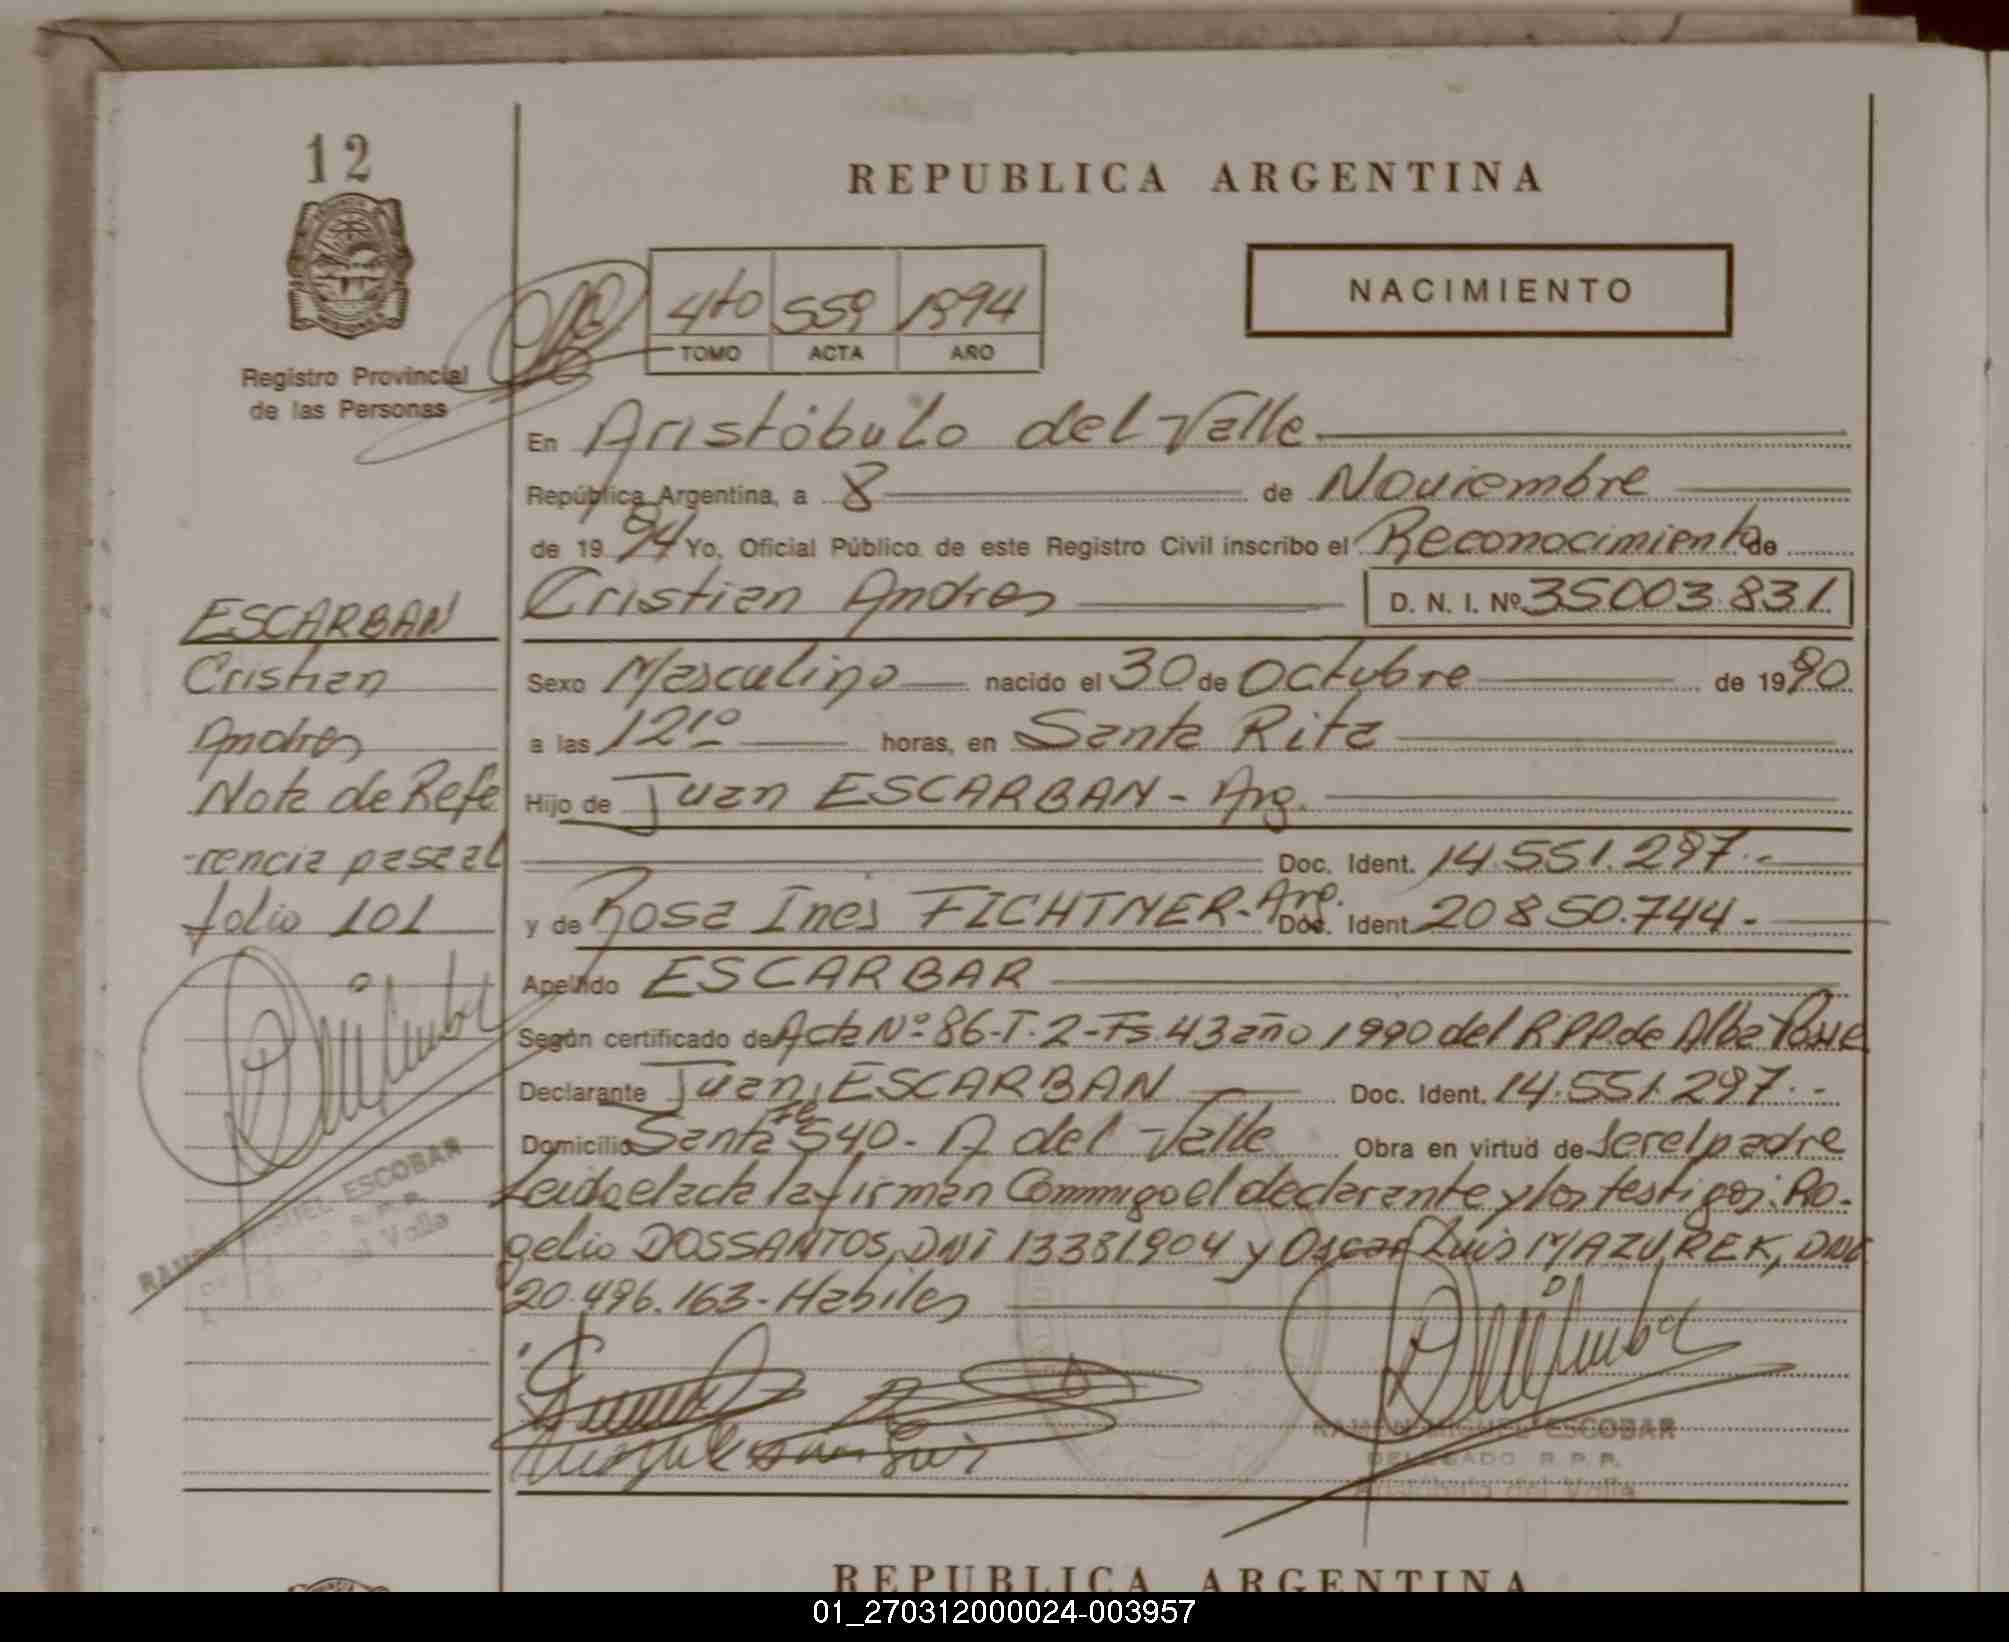 12
REPUBLICA ARGENTINA
4to 559 1994
TOMO ACTA AÑO
NACIMIENTO
Registro Provincial
de las Personas
En Aristóbulo del Valle
República Argentina, a 8 de Noviembre
de 1994 Yo, Oficial Público de este Registro Civil inscribo el Reconocimiento de
Cristian Andres D. N. I. Nº 35003.831
Sexo Masculino nacido el 30 de Octubre de 1990
a las 12 10 horas, en Santa Rita
Hijo de Juan ESCARBAN - Arg.
Doc. Ident. 14.551.297.-
y de Rosa Ines FICHTNER - Arg. Doc. Ident. 20850.744.-
Apellido ESCARBAR
Según certificado de Acta Nº 86-T.2-Fs.43 año 1990 del R.P.P. de Alba Posse
Declarante Juan ESCARBAN Doc. Ident. 14.551.297.-
Domicilio Santa Fe 540 - A del Valle Obra en virtud de ser el padre
Leida el acta la firman Conmigo el declarante y los testigos: Ro-
gelio DOSSANTOS, DNI 13381904 y Oscar Luis MAZUREK, DNI
20.496.163 - Habiles
ESCARBAN
Cristian
Andres
Nota de Refe
-rencia pasa al
folio 101
ESCOBAR
RAMON MIGUEL ESCOBAR
DELEGADO R.P.P.
REPUBLICA ARGENTINA
01_270312000024-003957